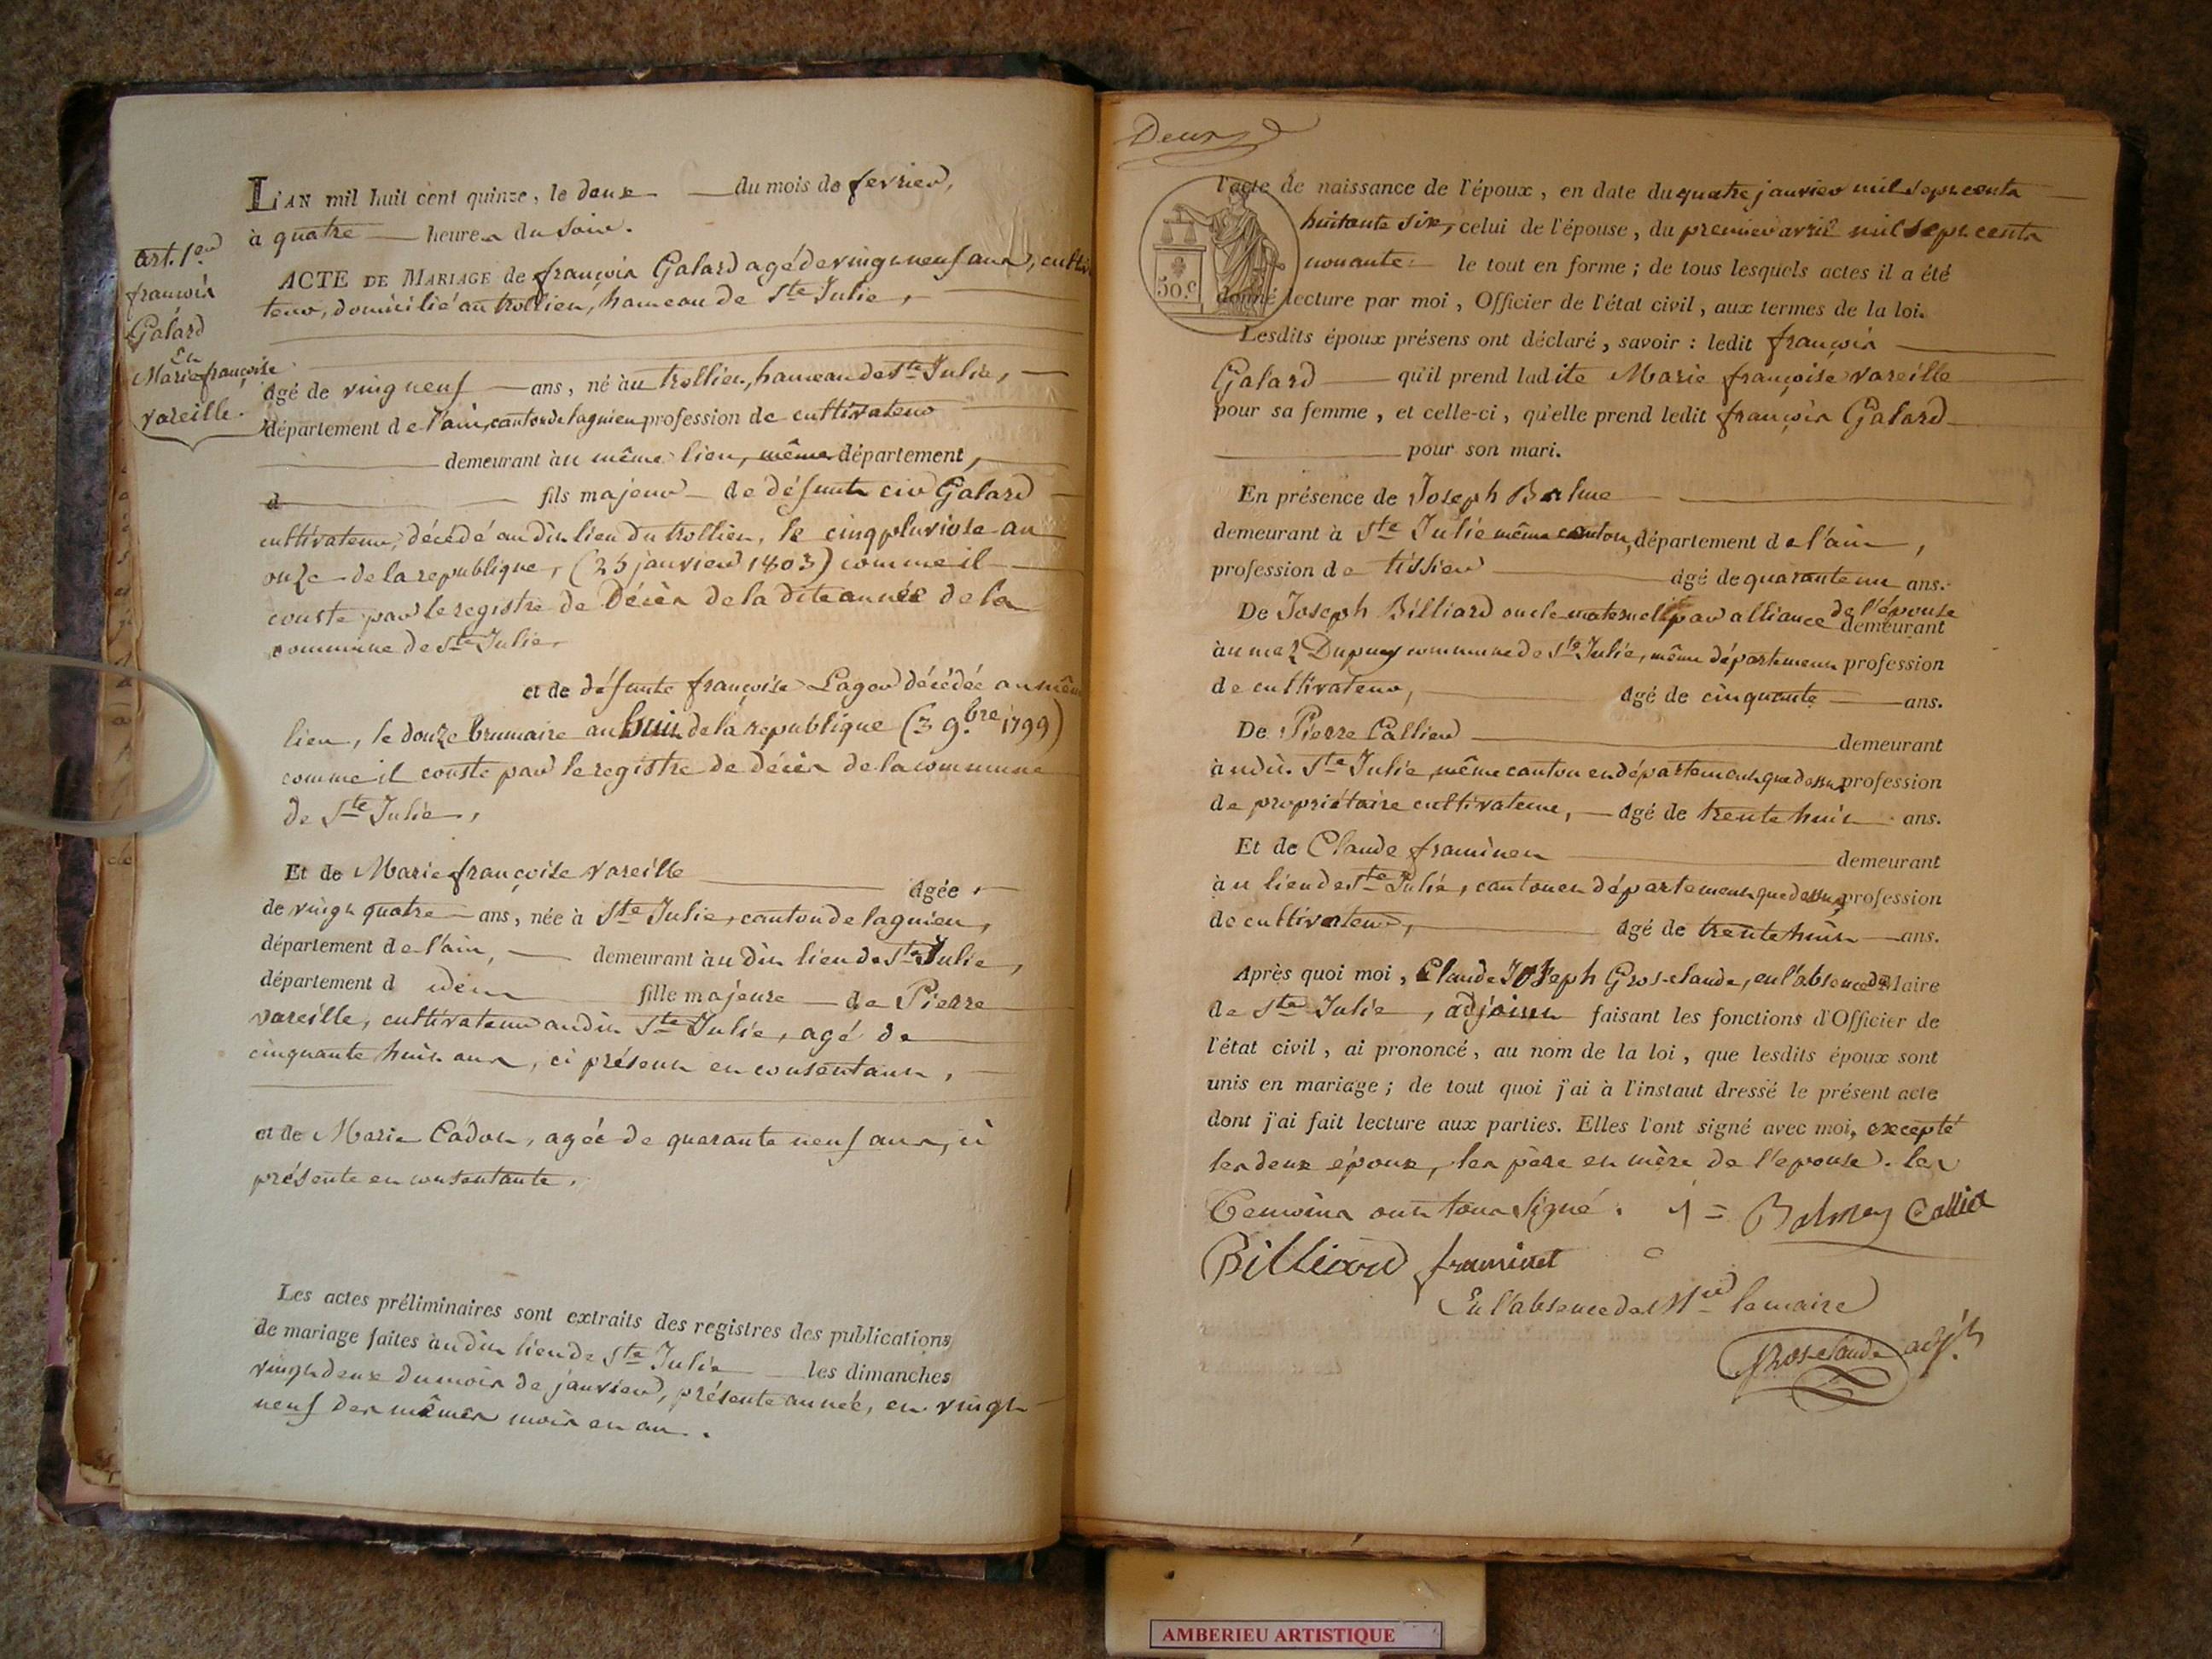 L'AN mil huit cent quinze, le deux du mois de fevrier,
à quatre heures du soir.
Art. 1er
françois
Galard
et
Marie françoise
vareille.
ACTE DE MARIAGE de françois Galard agé de vingt neuf ans, culti
teur, domicilié au trollien, hameau de Ste Julie,
âgé de ving neuf ans, né au trollien, hameau de Ste Julie,
département de l'ain, canton de lagnieu profession de cultivateur
demeurant au même lieu, même département,
d fils majeur de défunts Galard
cultivateur, décédé au dit lieu du trollien, le cinq pluviose an
onze de la republique, (25 janvier 1803) comme il
conste par le registre de Décès de la dite année de la
commune de Ste Julie.
et de défunte françoise Lager décédée au même
lieu, le douze brumaire an huit de la republique (3 9.bre 1799)
comme il conste par le registre de décès de la commune
de Ste Julie,
Et de Marie françoise vareille âgée
de vingt quatre ans, née à Ste Julie, canton de lagnieu,
département de l'ain, demeurant au dit lieu de Ste Julie,
département d idem fille majeure de Pierre
vareille, cultivateur au dit Ste Julie, agé de
cinquante huit ans, ci présent et consentant,
et de Marie Cadot, agée de quarante neuf ans, ci
présente et consentante.
Les actes préliminaires sont extraits des registres des publications
de mariage faites au dit lieu de Ste Julie les dimanches
vingt deux du mois de janvier, présente année, et vingt
neuf des mêmes mois et an.
Deux
50.c
l'acte de naissance de l'époux, en date du quatre janvier mil sept cents
huitante six, celui de l'épouse, du premier avril mil sept cents
nonante le tout en forme; de tous lesquels actes il a été
donné lecture par moi, Officier de l'état civil, aux termes de la loi.
Lesdits époux présens ont déclaré, savoir : ledit françois
Galard qu'il prend ladite Marie françoise vareille
pour sa femme, et celle-ci, qu'elle prend ledit françois Galard
pour son mari.
En présence de Joseph Balme
demeurant à Ste Julie même canton, département de l'ain,
profession de tissier âgé de quarante un ans.
De Joseph Billiard oncle maternel par alliance de l'épouse demeurant
au maz Dupuy commune de Ste Julie, même département profession
de cultivateur, âgé de cinquante ans.
De Pierre Callier demeurant
au dit Ste Julie même canton et département que dessus profession
de propriétaire cultivateur, âgé de trente huit ans.
Et de Claude framinet demeurant
au lieu de Ste Julie, canton et département que dessus profession
de cultivateur, âgé de trente huit ans.
Après quoi moi, Claude Joseph Gros-claude, en l'absence du Maire
de Ste Julie, adjoint faisant les fonctions d'Officier de
l'état civil, ai prononcé, au nom de la loi, que lesdits époux sont
unis en mariage; de tout quoi j'ai à l'instant dressé le présent acte
dont j'ai fait lecture aux parties. Elles l'ont signé avec moi, excepté
les deux époux, les père et mère de l'epouse. les
temoins ont tous signé. J = Balmey Calliet
Billiard framinet
En l'absence de Mr le maire
Grosclaude adj.t
AMBERIEU ARTISTIQUE